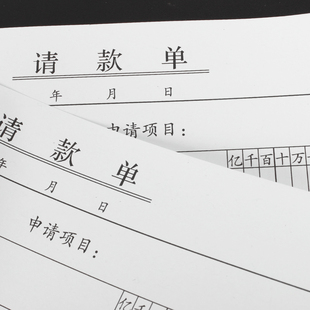 请 款 单
年 月 日
申请项目：
亿千百十万千
请 款 单
年 月 日
申请项目：
亿千